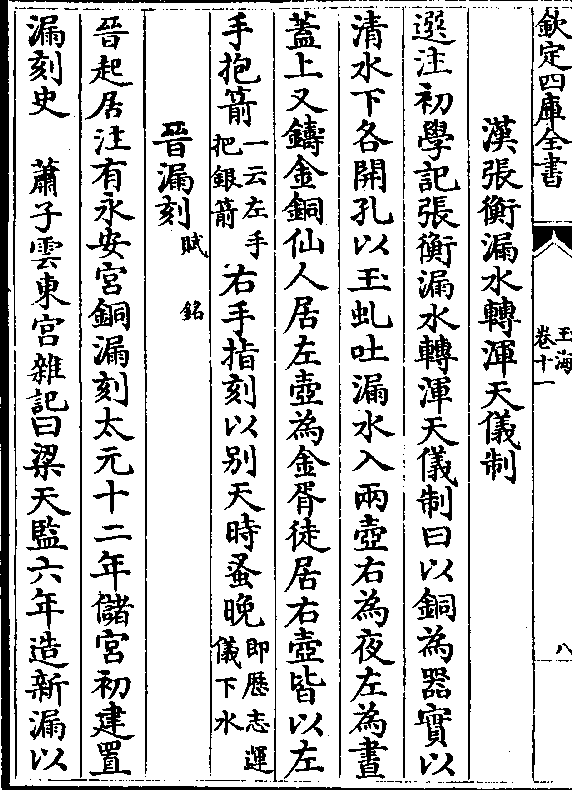 欽定四庫全書
玉海
卷十一
八
漢張衡漏水轉渾天儀制
選注初學記張衡漏水轉渾天儀制曰以銅為器實以
清水下各開孔以玉虬吐漏水入兩壺右為夜左為晝
蓋上又鑄金銅仙人居左壺為金胥徒居右壺皆以左
手抱箭一云左手把銀箭右手指刻以别天時蚤晚即歴志運儀下水
晉漏刻賦 銘
晉起居注有永安宮銅漏刻太元十二年儲宮初建置
漏刻史 蕭子雲東宮雜記曰梁天監六年造新漏以